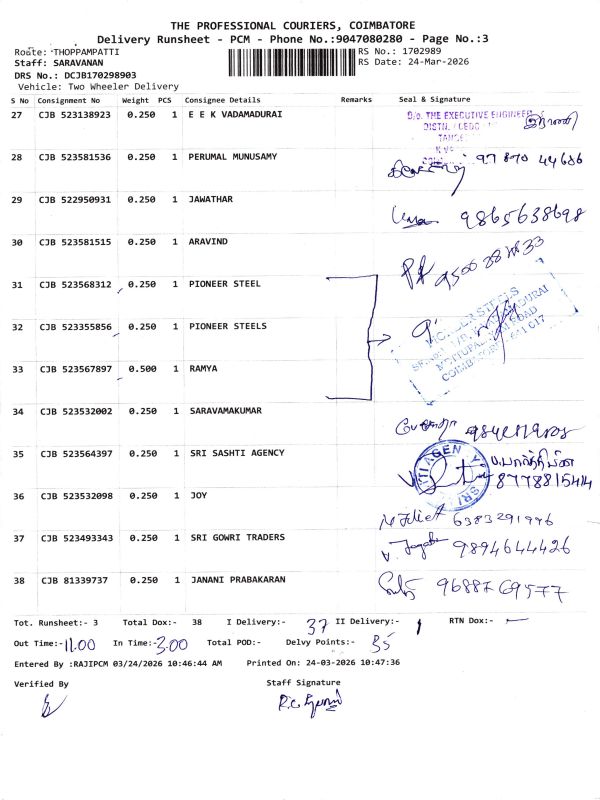 THE PROFESSIONAL COURIERS, COIMBATORE
Delivery Runsheet - PCM - Phone No.:9047080280 - Page No.:3
Route: THOPPAMPATTI
RS No.: 1702989
Staff: SARAVANAN
RS Date: 24-Mar-2026
DRS No.: DCJB170298903
Vehicle: Two Wheeler Delivery
S No Consignment No Weight PCS Consignee Details Remarks Seal & Signature
27 CJB 523138923 0.250 1 E E K VADAMADURAI
THE EXECUTIVE ENGINEER
28 CJB 523581536 0.250 1 PERUMAL MUNUSAMY 97 870 44686
29 CJB 522950931 0.250 1 JAWATHAR 9865638698
30 CJB 523581515 0.250 1 ARAVIND
31 CJB 523568312 0.250 1 PIONEER STEEL
32 CJB 523355856 0.250 1 PIONEER STEELS
33 CJB 523567897 0.500 1 RAMYA
34 CJB 523532002 0.250 1 SARAVAMAKUMAR
35 CJB 523564397 0.250 1 SRI SASHTI AGENCY 8778815414
36 CJB 523532098 0.250 1 JOY 6383291996
37 CJB 523493343 0.250 1 SRI GOWRI TRADERS 9894644426
38 CJB 81339737 0.250 1 JANANI PRABAKARAN 9688769577
Tot. Runsheet:- 3 Total Dox:- 38 I Delivery:- 37 II Delivery:- 1 RTN Dox:- —
Out Time:- 11.00 In Time:- 3.00 Total POD:- Delvy Points:- 35
Entered By :RAJIPCM 03/24/2026 10:46:44 AM Printed On: 24-03-2026 10:47:36
Verified By Staff Signature